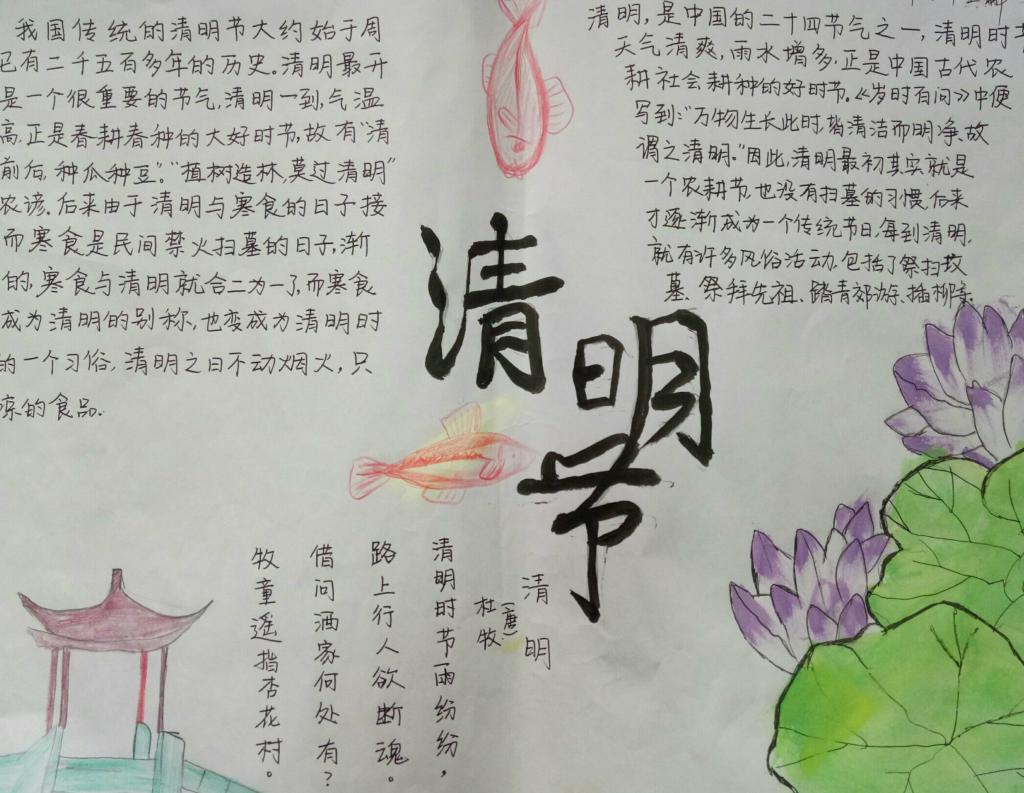 我国传统的清明节大约始于周
已有二千五百多年的历史。清明最开
是一个很重要的节气,清明一到,气温
高,正是春耕春种的大好时节,故有“清
前后,种瓜种豆。”“植树造林,莫过清明”
农谚。后来由于清明与寒食的日子接
而寒食是民间禁火扫墓的日子,渐
的,寒食与清明就合二为一了,而寒食
成为清明的别称,也变成为清明时
的一个习俗,清明之日不动烟火,只
凉的食品.
清明,是中国的二十四节气之一,清明时节
天气清爽,雨水增多,正是中国古代农
耕社会耕种的好时节。《岁时百问》中便
写到:“万物生长此时,皆清洁而明净,故
谓之清明。”因此,清明最初其实就是
一个农耕节,也没有扫墓的习惯,后来
才逐渐成为一个传统节日,每到清明,
就有许多风俗活动,包括了祭扫坟
墓、祭拜先祖、踏青郊游、插柳
清明节
清明
(唐)
杜牧
清明时节雨纷纷,
路上行人欲断魂。
借问酒家何处有?
牧童遥指杏花村。